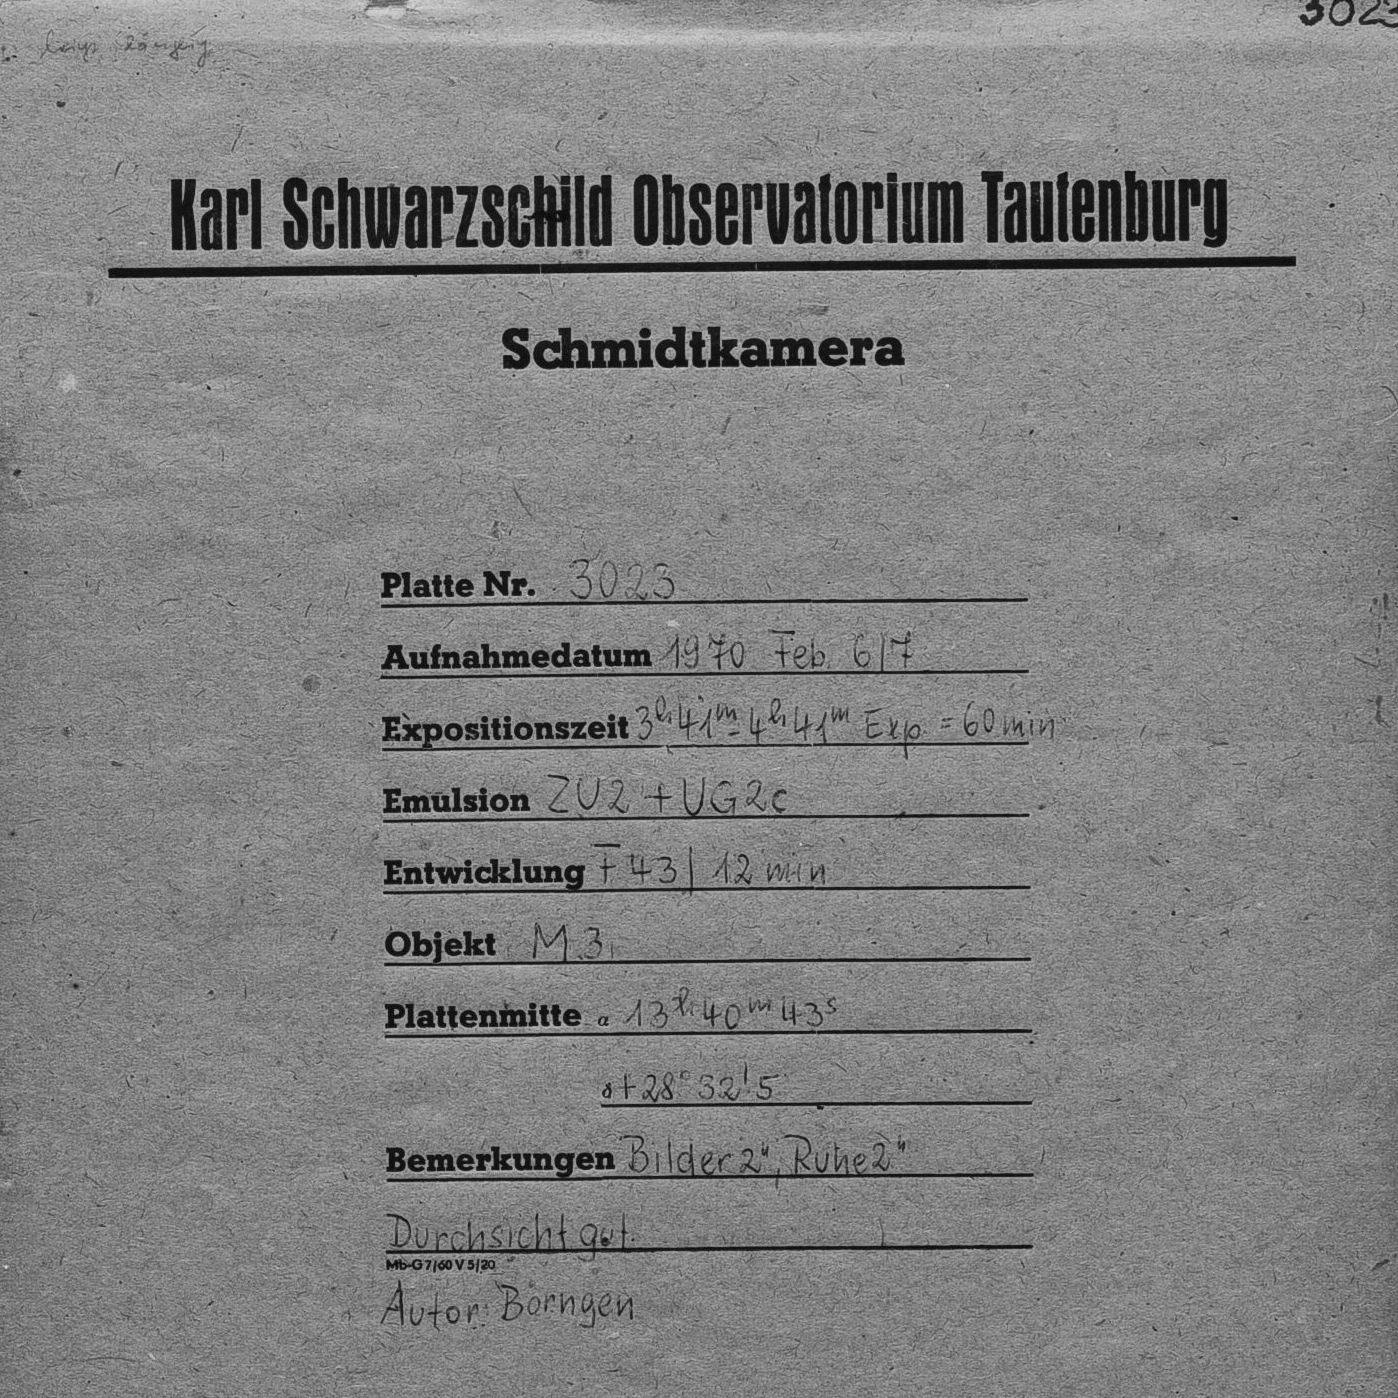 3023
Karl Schwarzschild Observatorium Tautenburg
Schmidtkamera
Platte Nr. 3023
Aufnahmedatum 1970 Feb. 6/7
Expositionszeit 3h41m-4h41m Exp. = 60min
Emulsion ZU2 + UG2c
Entwicklung F43 | 12 min
Objekt M 3
Plattenmitte α 13h40m43s
δ +28°32'5
Bemerkungen Bilder 2", Ruhe 2"
Durchsicht gut.
Mb-G 7/60 V 5/20
Autor: Börngen